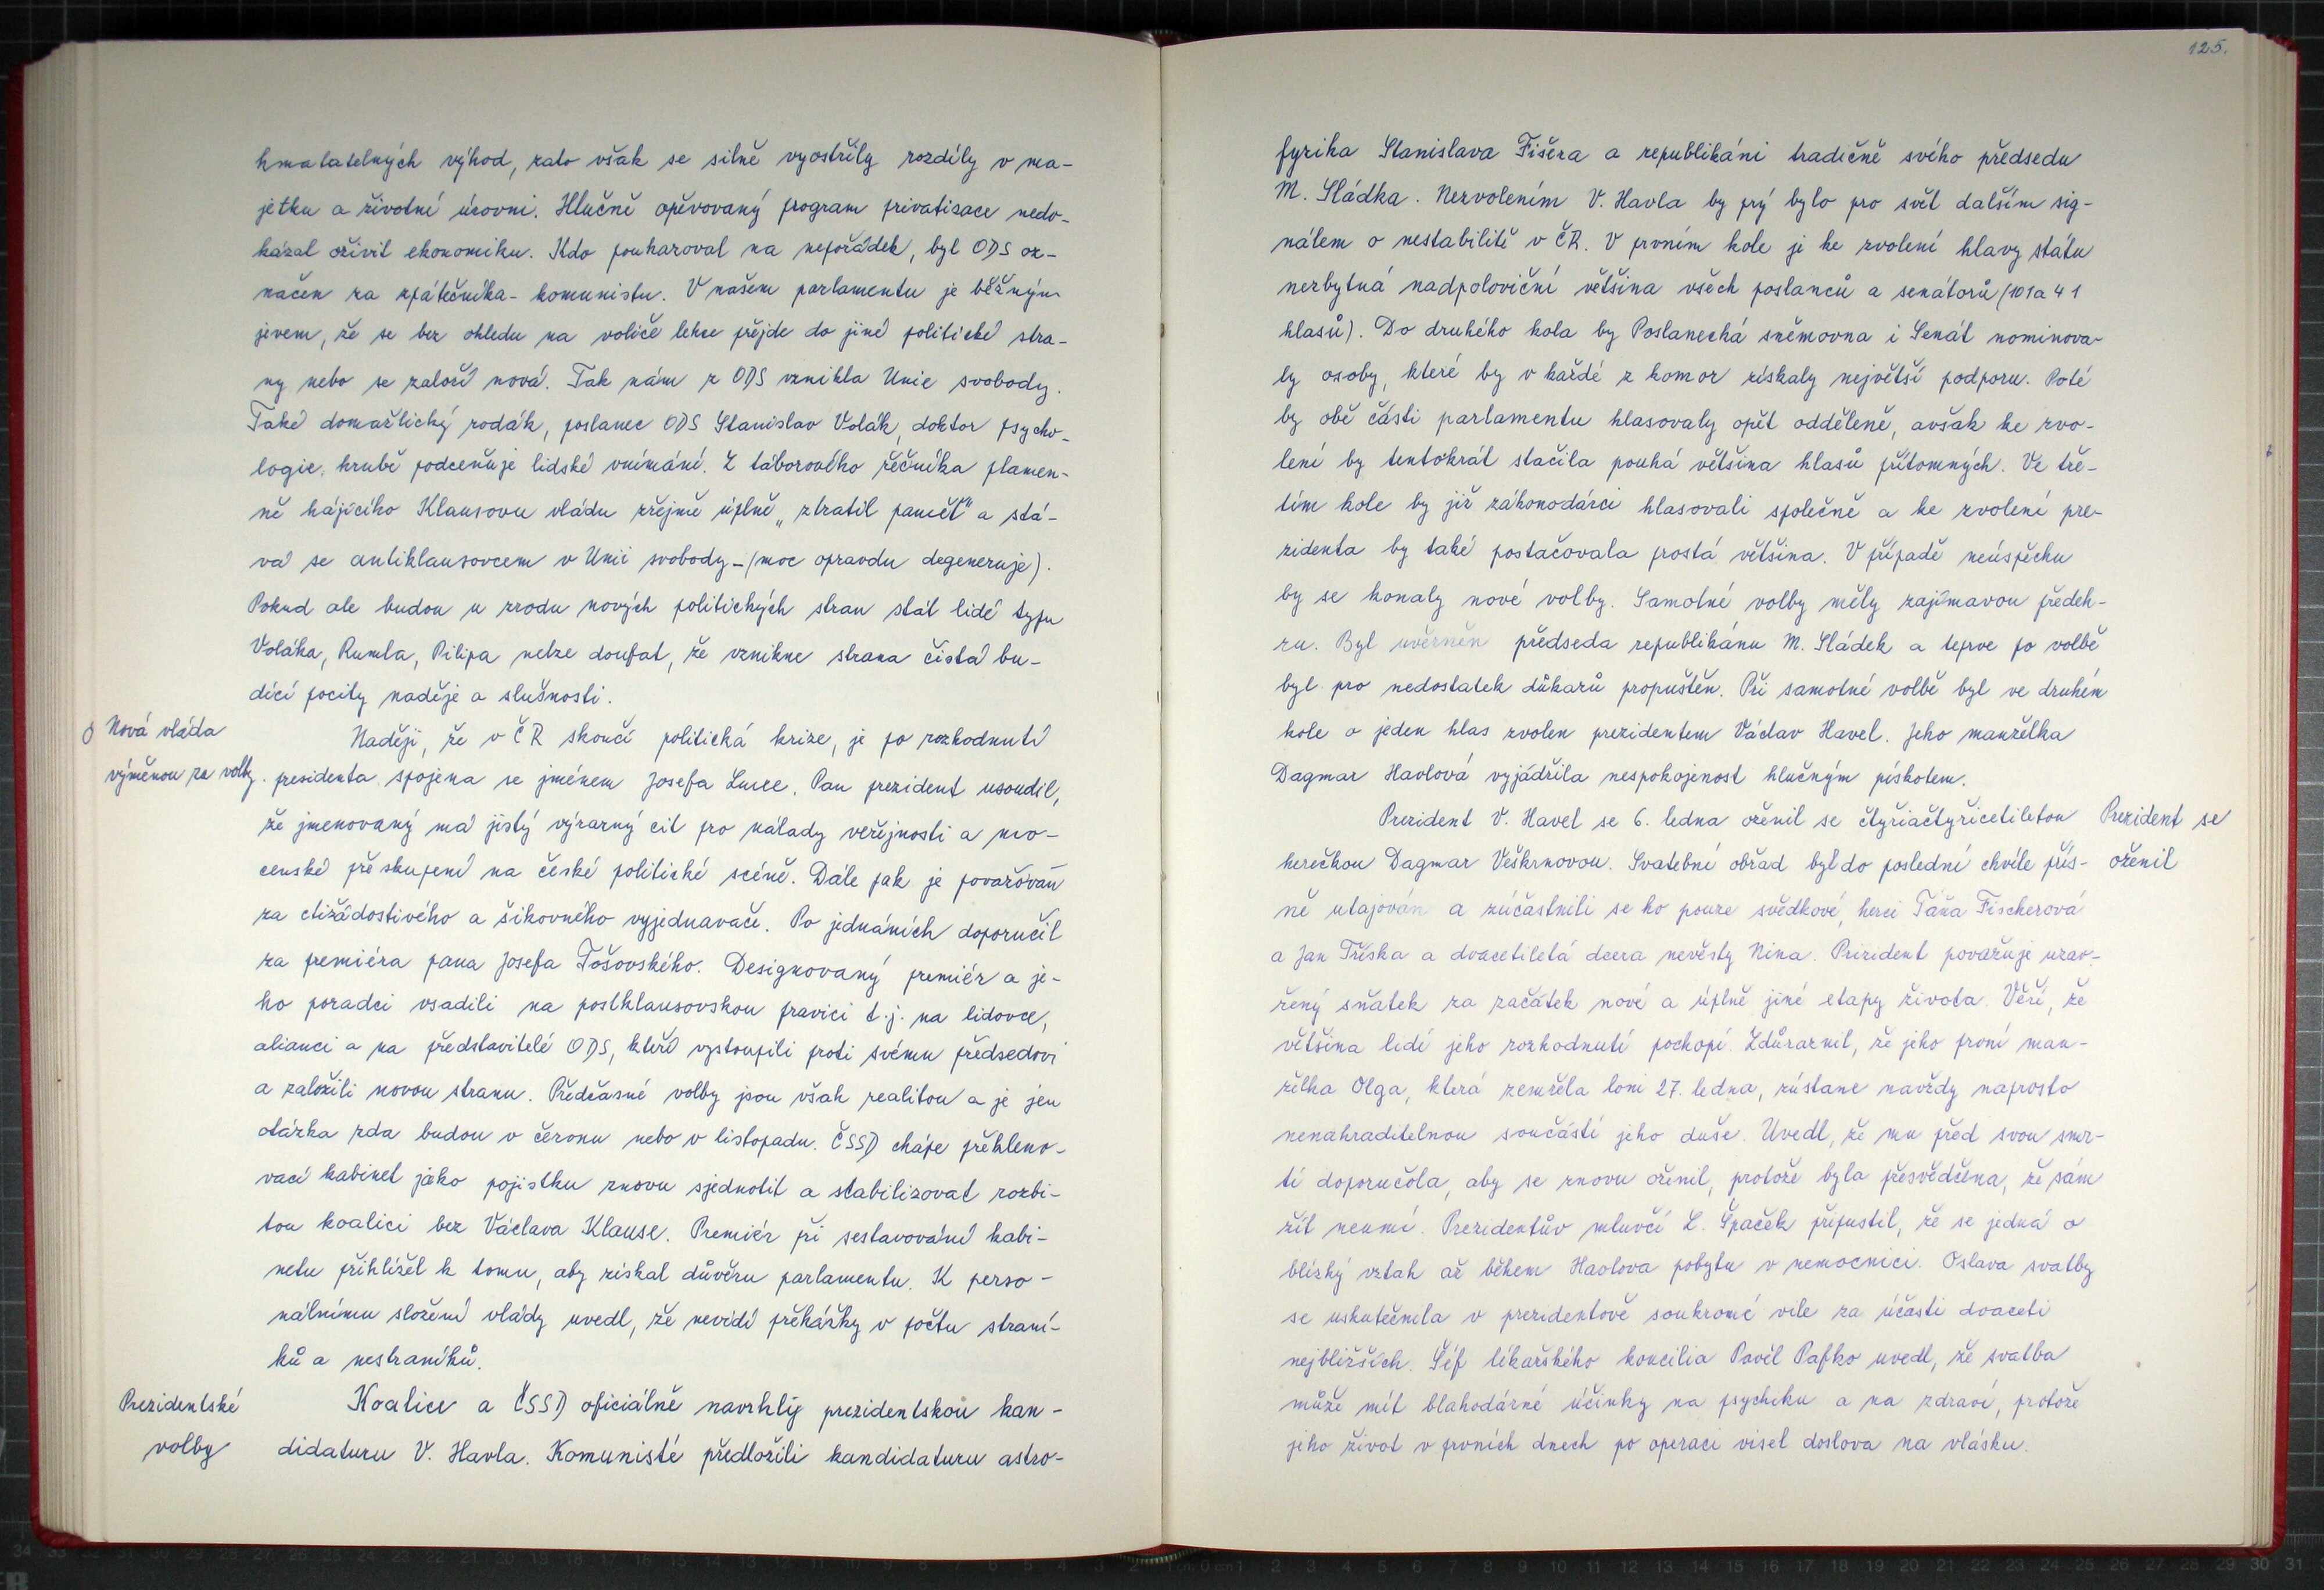 hmatatelných výhod, zato však se silně vyostřily rozdíly v ma-
jetku a životní úrovni. Hlučně opěvovaný program privatisace nedo-
kázal oživit ekonomiku. Kdo poukazoval na nepořádek, byl ODS oz-
načen za zpátečníka-komunistu. V našem parlamentu je běžným
jevem, že se bez ohledu na voliče lehce přejde do jiné politické stra-
ny nebo se založí nová. Tak nám z ODS vznikla Unie svobody.
Také domažlický rodák, poslanec ODS Stanislav Volák, doktor psycho-
logie, hrubě podceňuje lidské vnímání. Z táborového řečníka plamen-
ně hájícího Klausovu vládu zřejmě úplně „ztratil paměť" a stá-
vá se antiklausovcem v Unii svobody - (moc opravdu degeneruje).
Pokud ale budou u zrodu nových politických stran stát lidé typu
Voláka, Rumla, Pilipa nelze doufat, že vznikne strana čistá bu-
dící pocity naděje a slušnosti.
Nová vláda
výměnou za volby.
Naději, že v ČR skončí politická krize, je po rozhodnutí
presidenta spojena se jménem Josefa Luxe. Pan prezident usoudil,
že jmenovaný má jistý výrazný cit pro nálady veřejnosti a mo-
censké přeskupení na české politické scéně. Dále pak je považován
za ctižádostivého a šikovného vyjednavače. Po jednáních doporučil
za premiéra pana Josefa Tošovského. Designovaný premiér a je-
ho poradci vsadili na postklausovskou pravici t.j. na lidovce,
alianci a na představitelé ODS, kteří vystoupili proti svému předsedovi
a založili novou stranu. Předčasné volby jsou však realitou a je jen
otázka zda budou v červnu nebo v listopadu. ČSSD chápe překleno-
vací kabinet jako pojistku znovu sjednotit a stabilizovat rozbi-
tou koalici bez Václava Klause. Premiér při sestavování kabi-
netu přihlížel k tomu, aby získal důvěru parlamentu. K perso-
nálnímu složení vlády uvedl, že nevidí překážky v počtu straní-
ků a nestraníků.
Prezidentské
volby
Koalice a ČSSD oficiálně navrhly prezidentskou kan-
didaturu V. Havla. Komunisté předložili kandidaturu astro-
125.
fyzika Stanislava Fišera a republikáni tradičně svého předsedu
M. Sládka. Nezvolením V. Havla by prý bylo pro svět dalším sig-
nálem o nestabilitě v ČR. V prvním kole je ke zvolení hlavy státu
nezbytná nadpoloviční většina všech poslanců a senátorů (101 a 41
hlasů). Do druhého kola by Poslanecká sněmovna i Senát nominova-
ly osoby, které by v každé z komor získaly největší podporu. Poté
by obě části parlamentu hlasovaly opět odděleně, avšak ke zvo-
lení by tentokrát stačila pouhá většina hlasů přítomných. Ve tře-
tím kole by již zákonodárci hlasovali společně a ke zvolení pre-
zidenta by také postačovala prostá většina. V případě neúspěchu
by se konaly nové volby. Samotné volby měly zajímavou předeh-
ru. Byl uvězněn předseda republikánu M. Sládek a teprve po volbě
byl pro nedostatek důkazů propuštěn. Při samotné volbě byl ve druhém
kole o jeden hlas zvolen prezidentem Václav Havel. Jeho manželka
Dagmar Havlová vyjádřila nespokojenost hlučným pískotem.
Prezident V. Havel se 6. ledna oženil se čtyřiačtyřicetiletou
herečkou Dagmar Veškrnovou. Svatební obřad byl do poslední chvíle přís-
Prezident se
oženil
ně utajován a zúčastnili se ho pouze svědkové, herci Táňa Fischerová
a Jan Tříska a dvacetiletá dcera nevěsty Nina. Prezident považuje uzav-
řený sňatek za začátek nové a úplně jiné etapy života. Věří, že
většina lidí jeho rozhodnutí pochopí. Zdůraznil, že jeho první man-
želka Olga, která zemřela loni 27. ledna, zůstane navždy naprosto
nenahraditelnou součástí jeho duše. Uvedl, že mu před svou smr-
tí doporučola, aby se znovu oženil, protože byla přesvědčena, že sám
žít neumí. Prezidentův mluvčí L. Špaček připustil, že se jedná o
blízký vztah až během Havlova pobytu v nemocnici. Oslava svatby
se uskutečnila v prezidentově soukromé vile za účasti dvaceti
nejbližších. Šéf lékařského koncilia Pavel Pafko uvedl, že svatba
může mít blahodárné účinky na psychiku a na zdraví, protože
jeho život v prvních dnech po operaci visel doslova na vlásku.